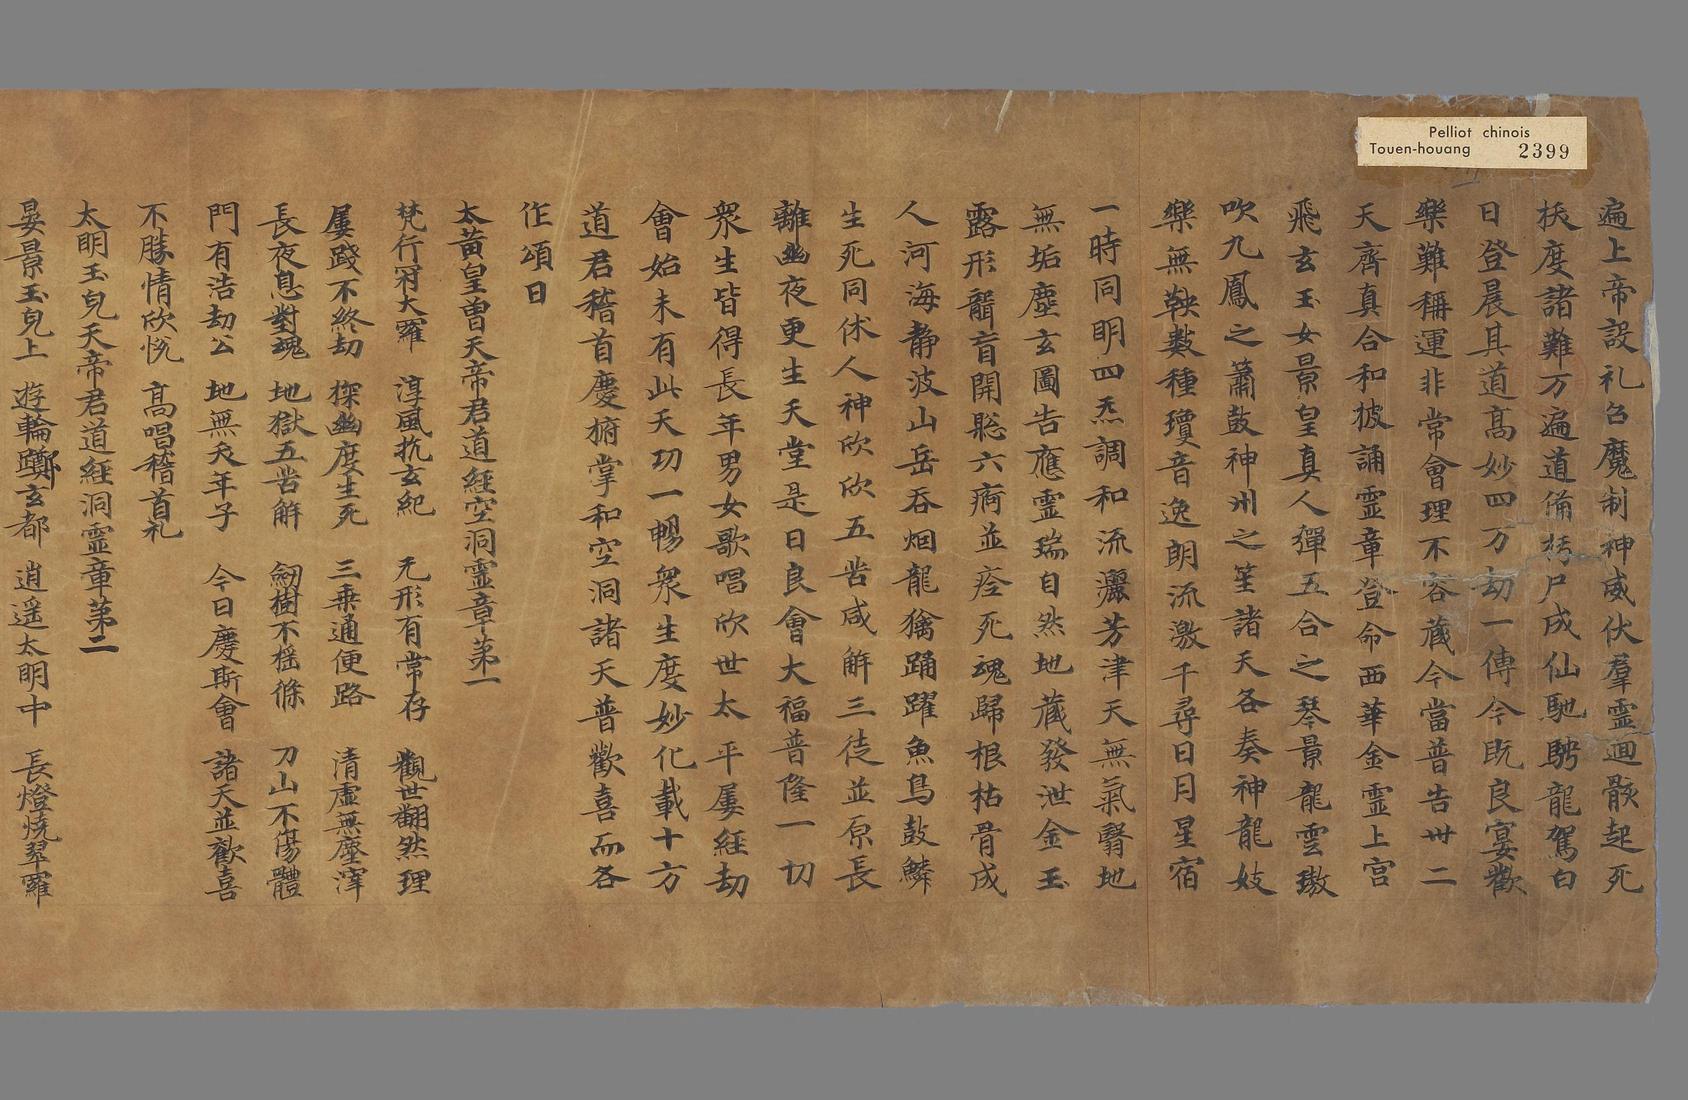 Pelliot chinois
Touen-houang 2399
遍上帝設礼召魔制神威伏羣霊迴骸起死
拔度諸難万遍道俻桥尸成仙馳騁龍駕白
日登晨其道髙妙四万劫一傳今既良宴歡
樂難稱運非常會理不容蔵今當普告卅二
天齊真合和披誦霊章登命西華金霊上宮
飛玄玉女景皇真人彈五合之琴景龍雲璈
吹九鳳之簫鼓神州之笙諸天各奏神龍妓
樂無鞅數種瓊音逸朗流激千尋日月星宿
一時同明四炁調和流灑芳津天無氣翳地
無垢塵玄圖告應霊瑞自然地蔵發泄金玉
露形聾盲開聡六痾並痊死魂歸根枯骨成
人河海静波山岳吞烟龍獝踊躍魚鳥鼓鱗
生死同休人神欣欣五苦咸解三徒並原長
離幽夜更生天堂是日良會大福普隆一切
衆生皆得長年男女歌唱欣世太平屢經劫
會始未有此天功一暢衆生度妙化載十方
道君稽首慶俯掌和空洞諸天普歡喜而各
作頌曰
太黃皇曽天帝君道經空洞霊章第一
梵行窮大羅 淳風抗玄紀 无形有常存 觀世翻然理
屢踐不終劫 探幽度生死 三乗通便路 清虛無塵滓
長夜息對魂 地獄五苦解 劒樹不揺條 刀山不傷體
門有浩劫公 地無夭年子 今日慶斯會 諸天並歡喜
不勝情欣恱 髙唱稽首礼
太明玉皃天帝君道經洞霊章第二
晏景玉皃上 遊輪躑玄都 逍遥太明中 長燈焼翠羅